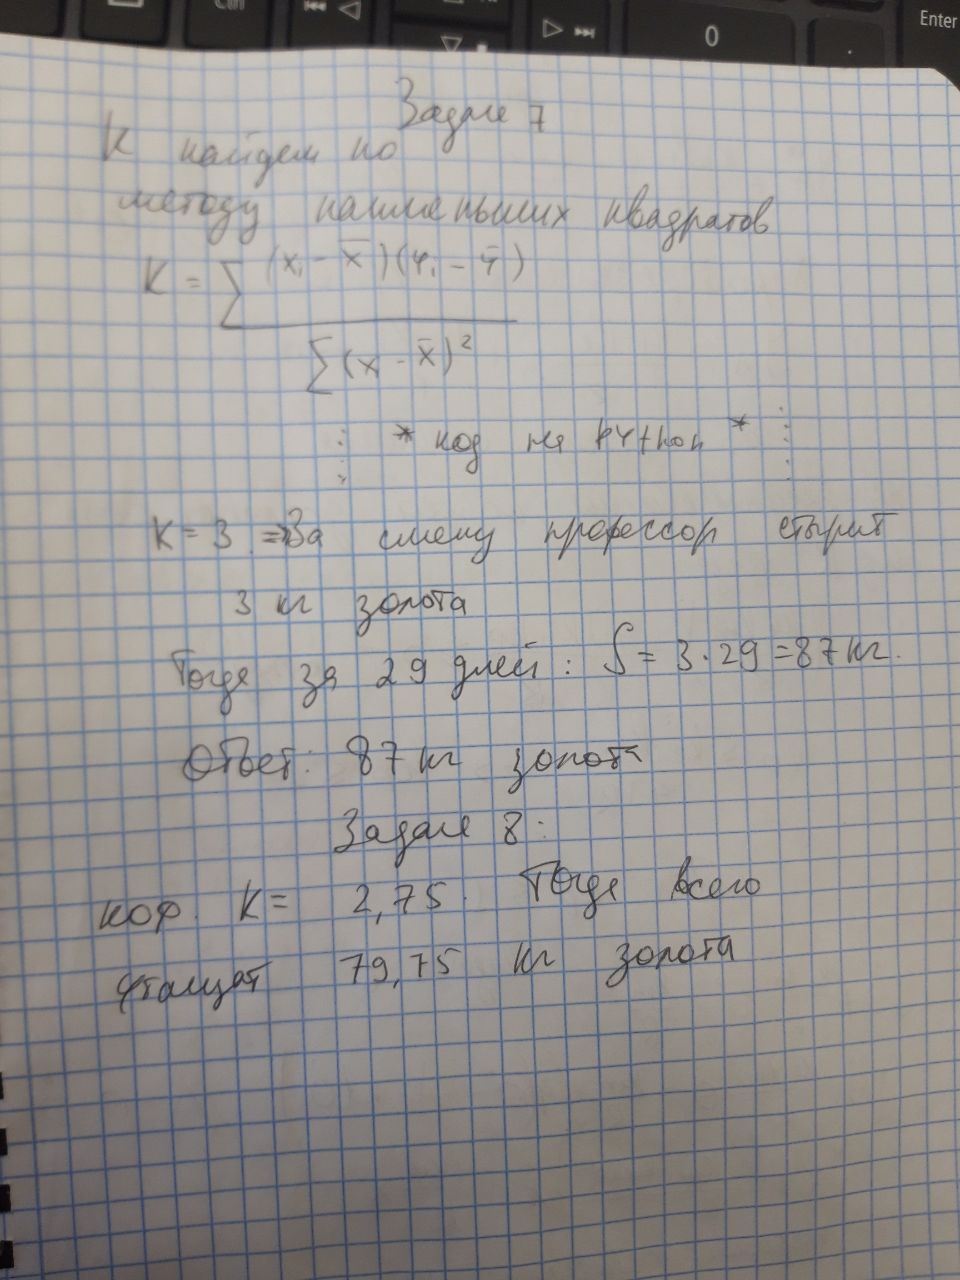 Ctrl
0
.
Enter
Задание 7
K найдем по
методу наименьших квадратов
K = ∑ (xᵢ - x̄)(yᵢ - ȳ)
∑(x - x̄)²
* код на python *
K = 3 => За смену профессор стырит
3 кг золота
Тогда за 29 дней: S = 3·29 = 87 кг.
Ответ: 87 кг золота
Задание 8:
коэф. K = 2,75. Тогда всего
утащат 79,75 кг золота